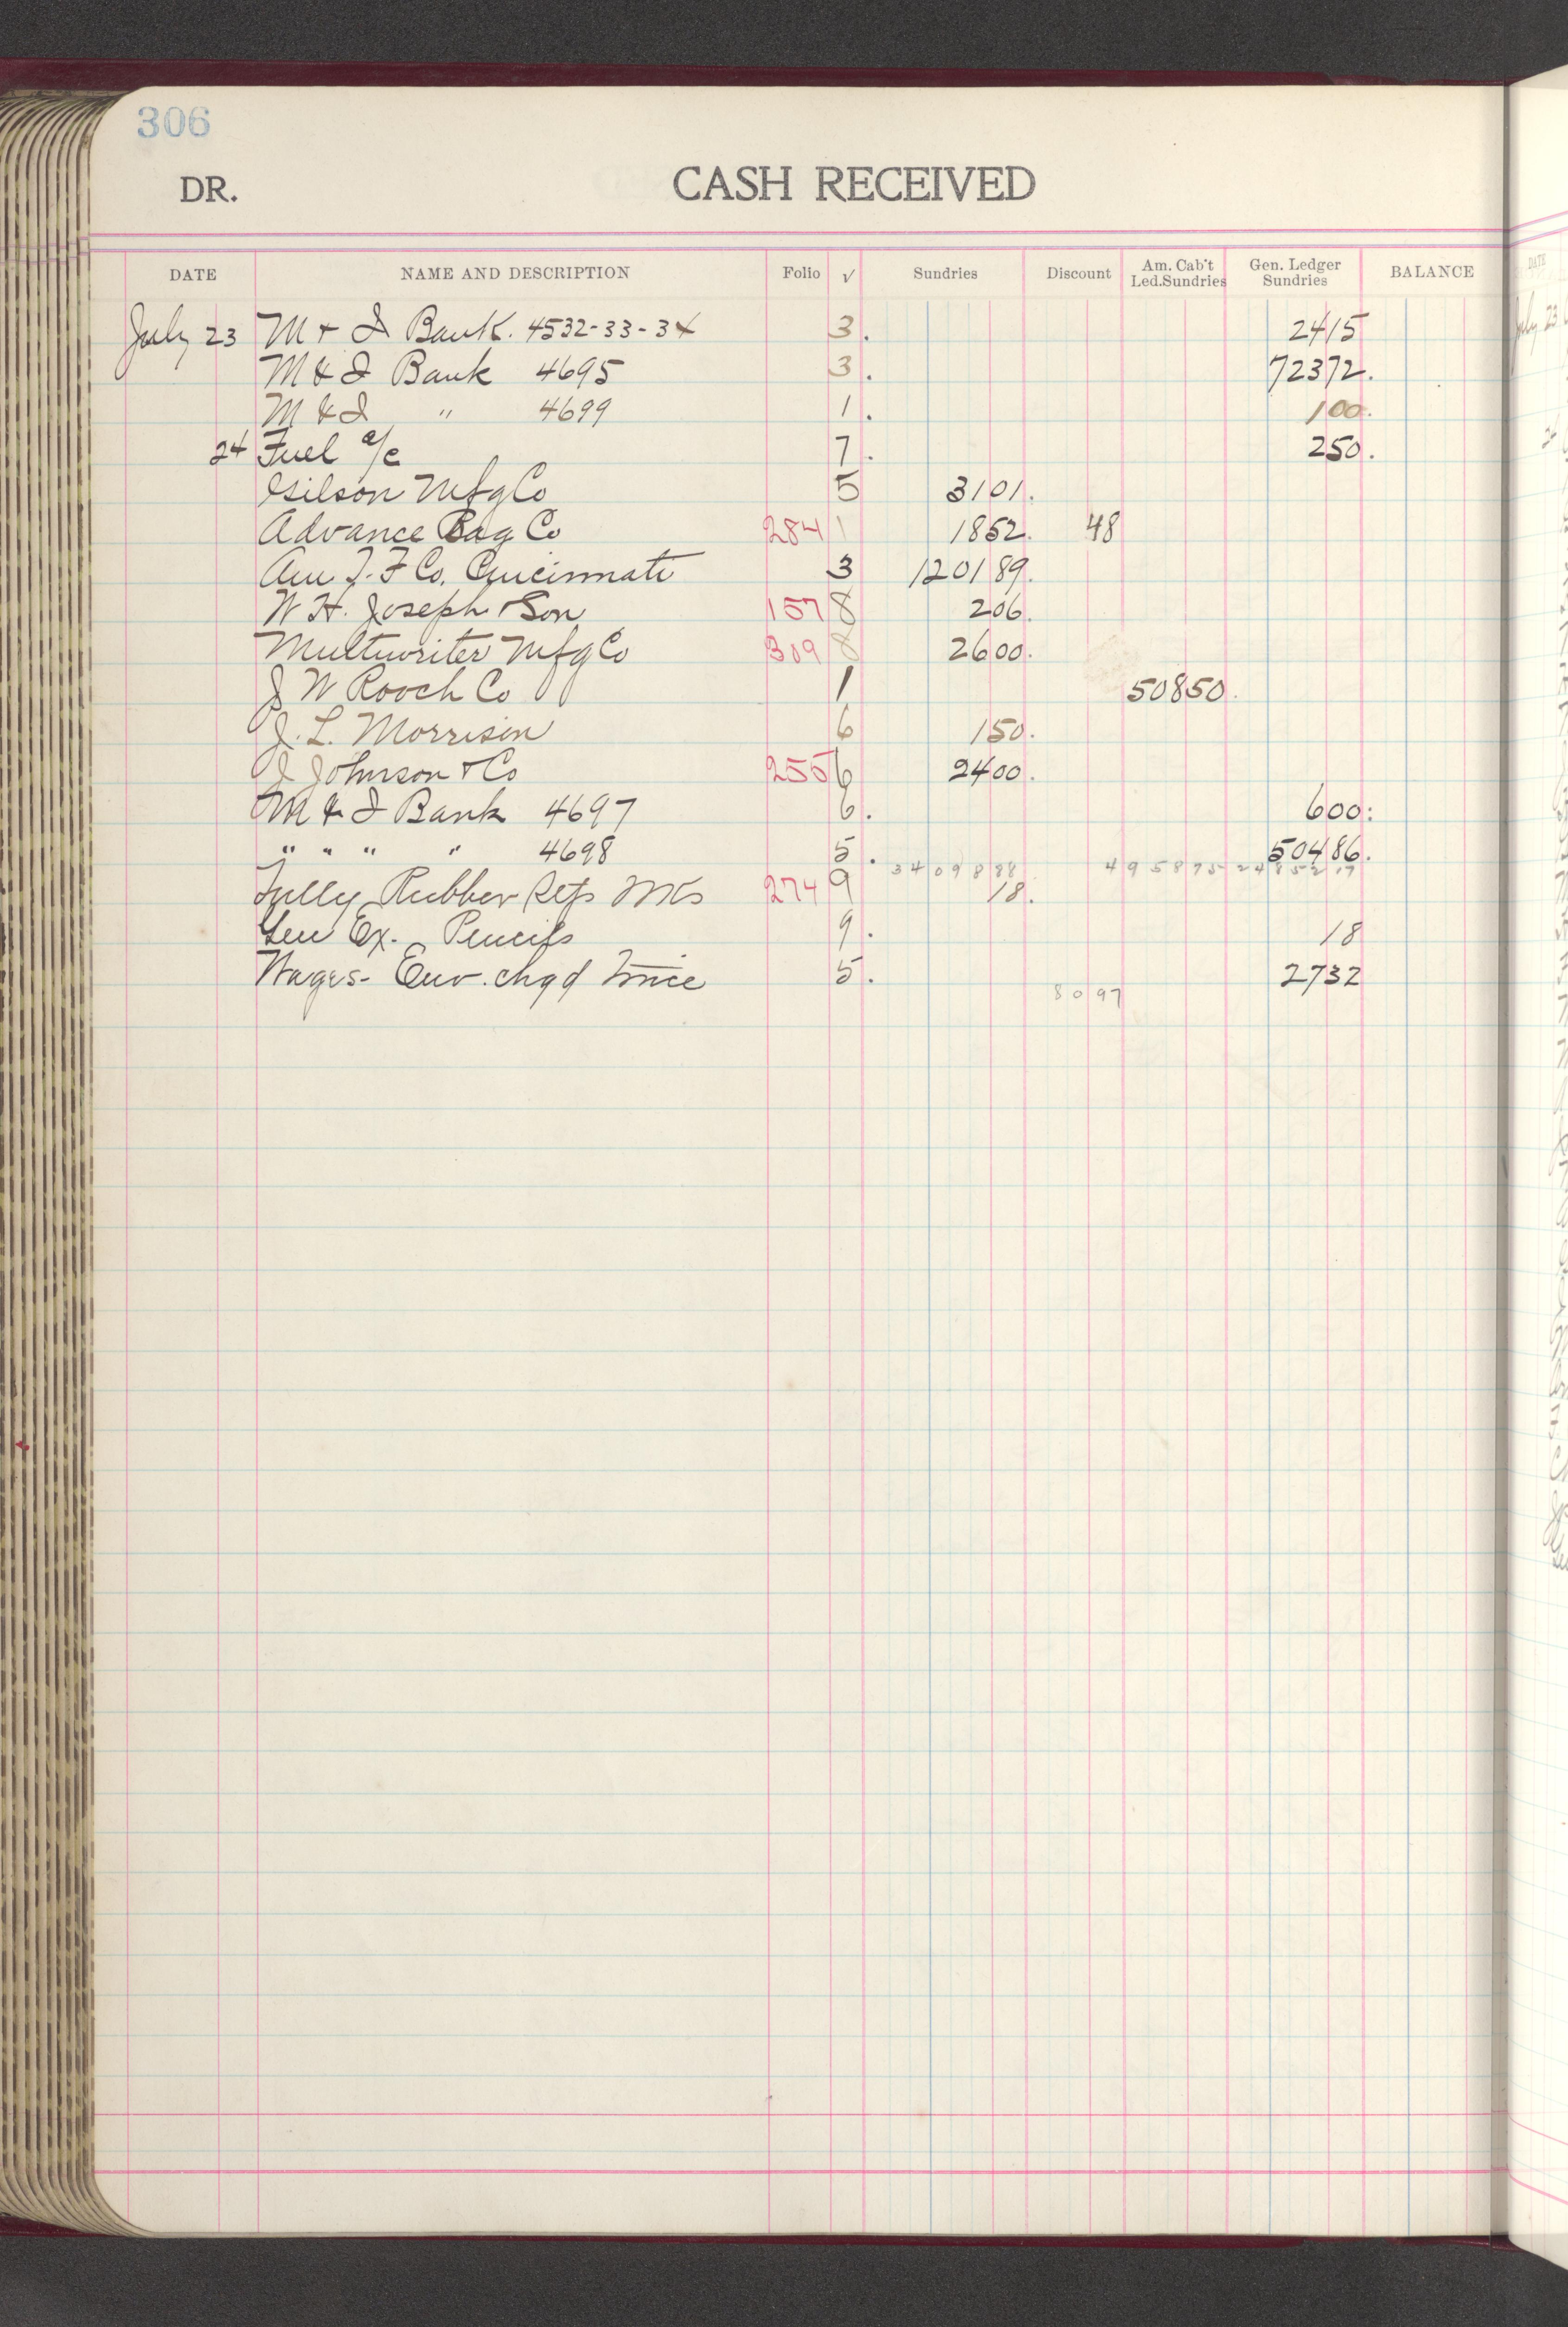 306
DR. CASH RECEIVED
DATE NAME AND DESCRIPTION Folio √ Sundries Discount Am. Cab't Led. Sundries Gen. Ledger Sundries BALANCE
July 23 M & I Bank. 4532-33-34 3. 24 15
M & I Bank 4695 3. 723 72.
M & I " 4699 1. 1 00.
24 Fuel a/c 7. 2 50.
Gilson Mfg Co 5 31 01.
Advance Bag Co 284 1 18 52. 48
Am T. F Co. Cincinnati 3 1201 89.
W H. Joseph & Son 157 8 2 06.
Multiwriter Mfg Co 309 8 26 00.
J W Rooch Co 1 508 50.
J. L. Morrison 6 1 50.
J Johnson & Co 255 6 24 00.
M & I Bank 4697 6. 6 00.
" " " " 4698 5. 504 86.
34 09 8 88 49 58 75 24 8 52 19
Rubber 274 9 18.
Gen Ex. Pencils 9. 18
Wages - Env. chgd twice 5. 27 32
80 97